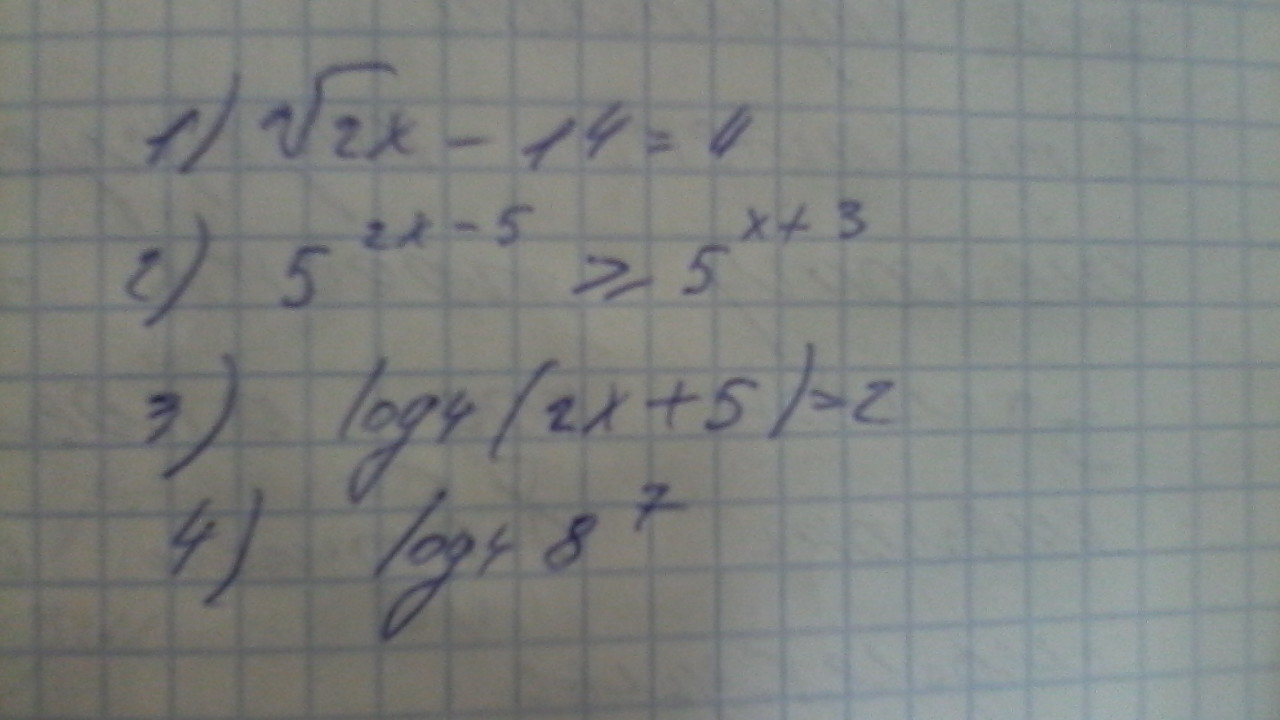 1) √2x - 14 = 4
2) 5^{2x-5} ⩾ 5^{x+3}
3) log₄(2x+5)=2
4) log₄ 8^7